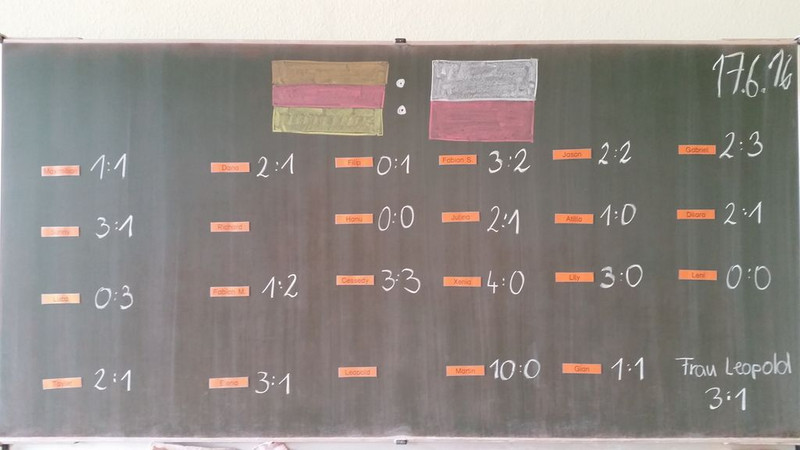 17.6.16
:
Maximilian 1:1
2:1
Filip 0:1
Fabian S. 3:2
Jason 2:2
Gabriel 2:3
3:1
Richard
Hanu 0:0
2:1
Atilla 1:0
2:1
0:3
Fabian M. 1:2
Cassedy 3:3
Xenia 4:0
Lilly 3:0
Leni 0:0
2:1
3:1
Leopold
10:0
Gian 1:1
Frau Leopold
3:1